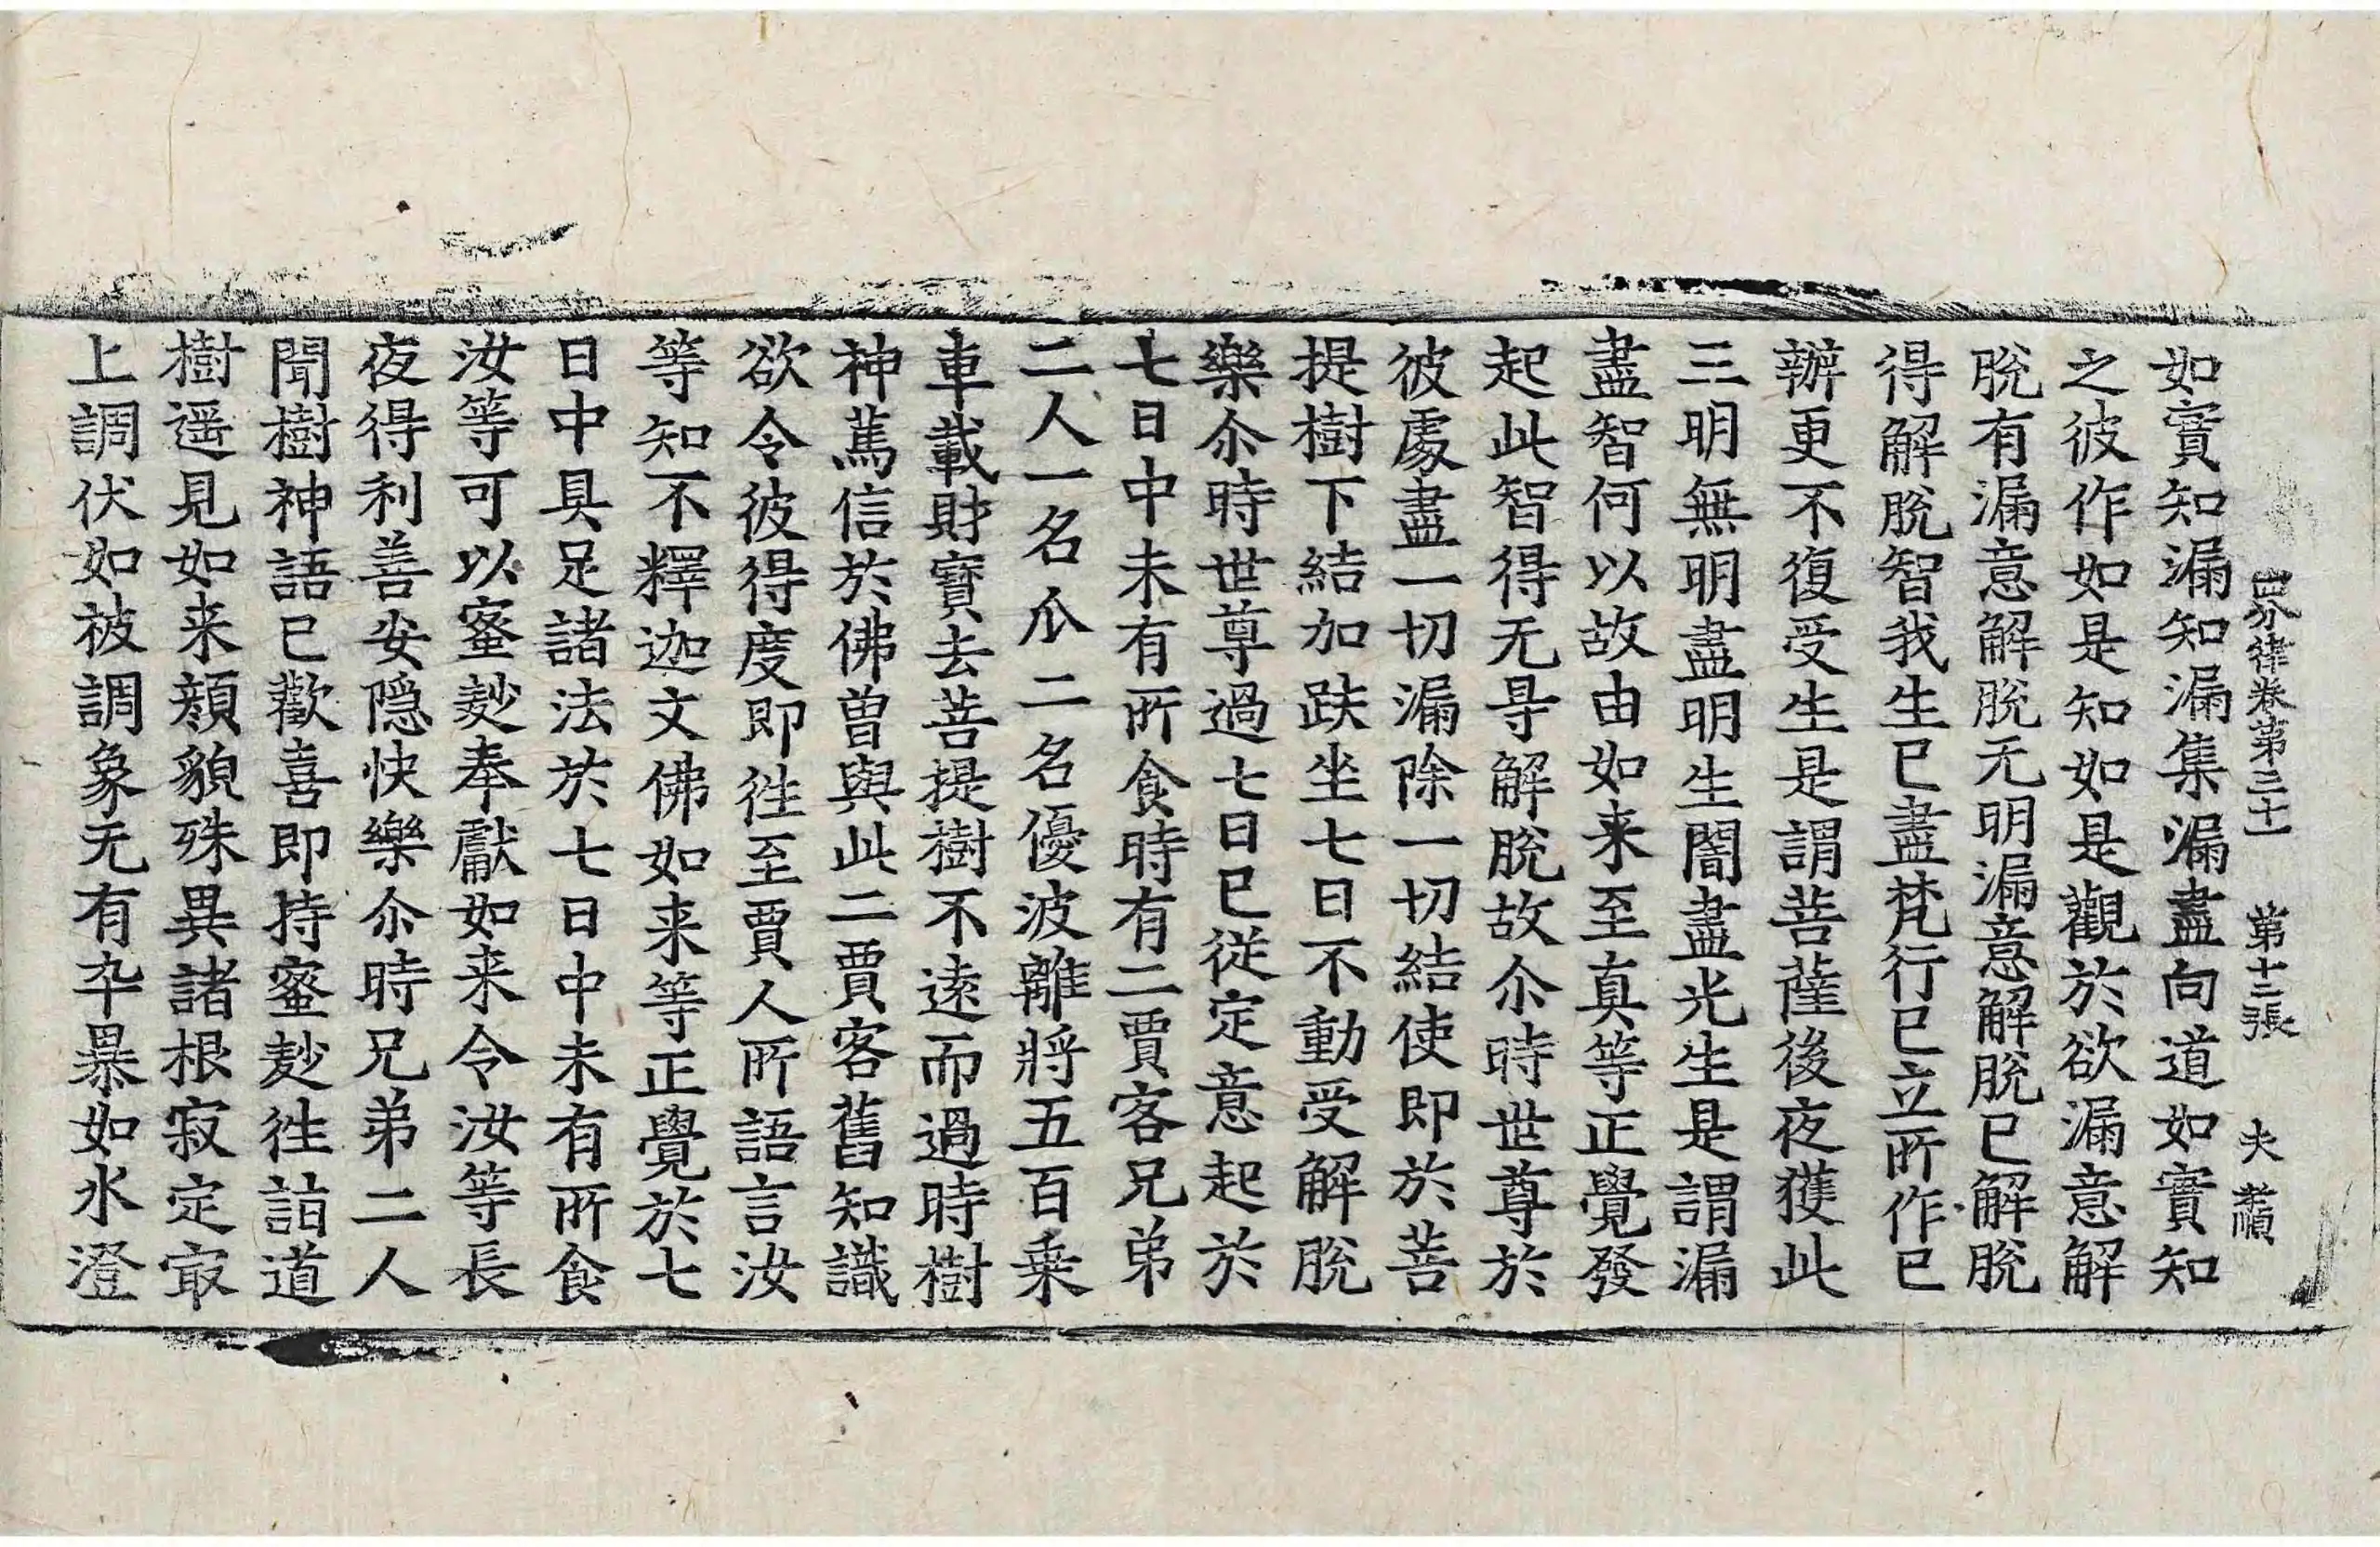 四分律卷第三十一 第十二張 夫 
如實知漏知漏集漏盡向道如實知
之彼作如是知如是觀於欲漏意解
脫有漏意解脫无明漏意解脫已解脫
得解脫智我生已盡梵行已立所作已
辦更不復受生是謂菩薩後夜獲此
三明無明盡明生闇盡光生是謂漏
盡智何以故由如来至真等正覺發
起此智得无㝵解脫故尒時世尊於
彼處盡一切漏除一切結使即於菩
提樹下結加趺坐七日不動受解脫
樂尒時世尊過七日已從定意起於
七日中未有所食時有二賈客兄弟
二人一名瓜二名優波離將五百乗
車載財寶去菩提樹不遠而過時樹
神篤信於佛曾與此二賈客舊知識
欲令彼得度即徃至賈人所語言汝
等知不釋迦文佛如来等正覺於七
日中具足諸法於七日中未有所食
汝等可以蜜麨奉獻如来令汝等長
夜得利善安隠快樂尒時兄弟二人
聞樹神語已歡喜即持蜜麨徃詣道
樹遥見如来顔貌殊異諸根寂定㝡
上調伏如被調象无有卒暴如水澄